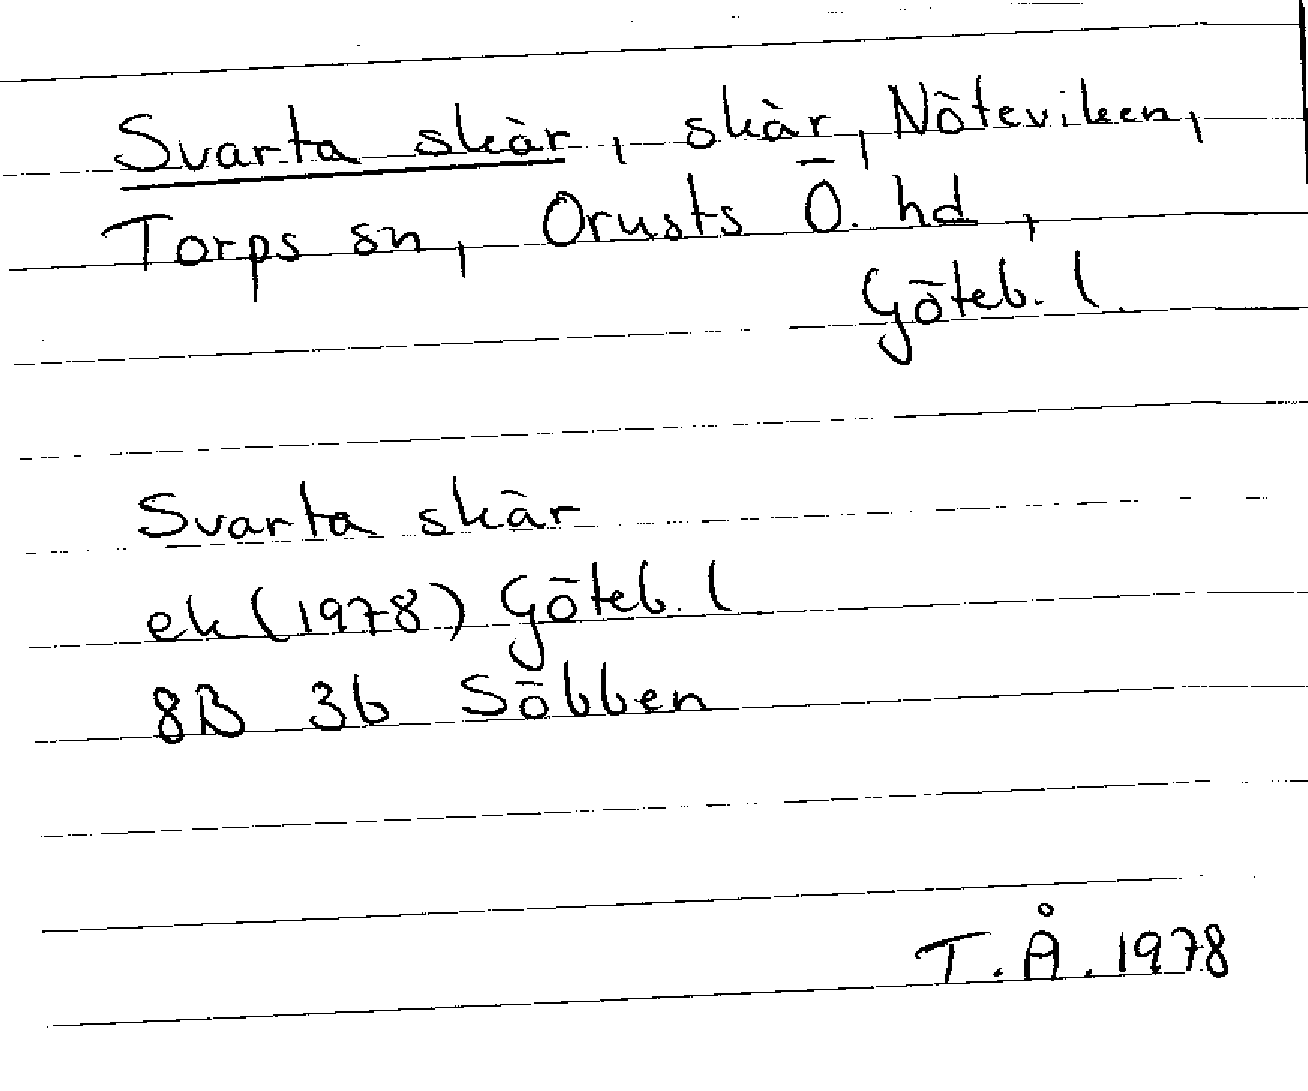 Svarta skär, skär, Nöteviken,
Torps sn, Orusts Ö. hd,
Göteb. l.
Svarta skär
ek (1978) Göteb. l
8B 3b Söbben
T. Å. 1978